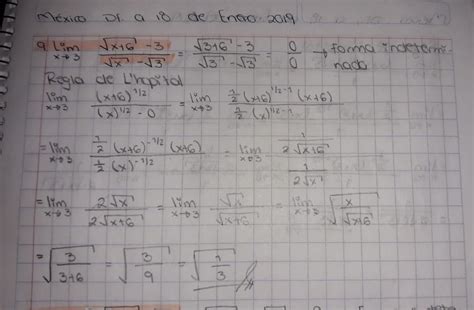 México Df a 18 de Enero 2019
9. lim x→3 (√(x+6) - 3)/(√x - √3) = (√(3+6) - 3)/(√3 - √3) = 0/0 → forma indetermi-
Regla de L'hopital nada
lim x→3 ((x+6)^(1/2))/((x)^(1/2) - 0) = lim x→3 (1/2 (x+6)^(1/2-1) (x+6))/(1/2 (x)^(1/2-1))
= lim x→3 (1/2 (x+6)^(-1/2) (x+6))/(1/2 (x)^(-1/2)) = lim x→3 (1/(2√(x+6)))/(1/(2√x))
= lim x→3 (2√x)/(2√(x+6)) = lim x→3 (√x)/(√(x+6)) = lim x→3 √(x/(√(x+6)))
= √(3/(3+6)) = √(3/9) = √(1/3)